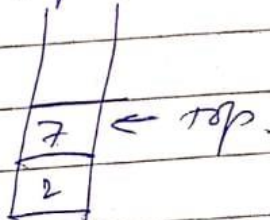 7 ← Top.
2